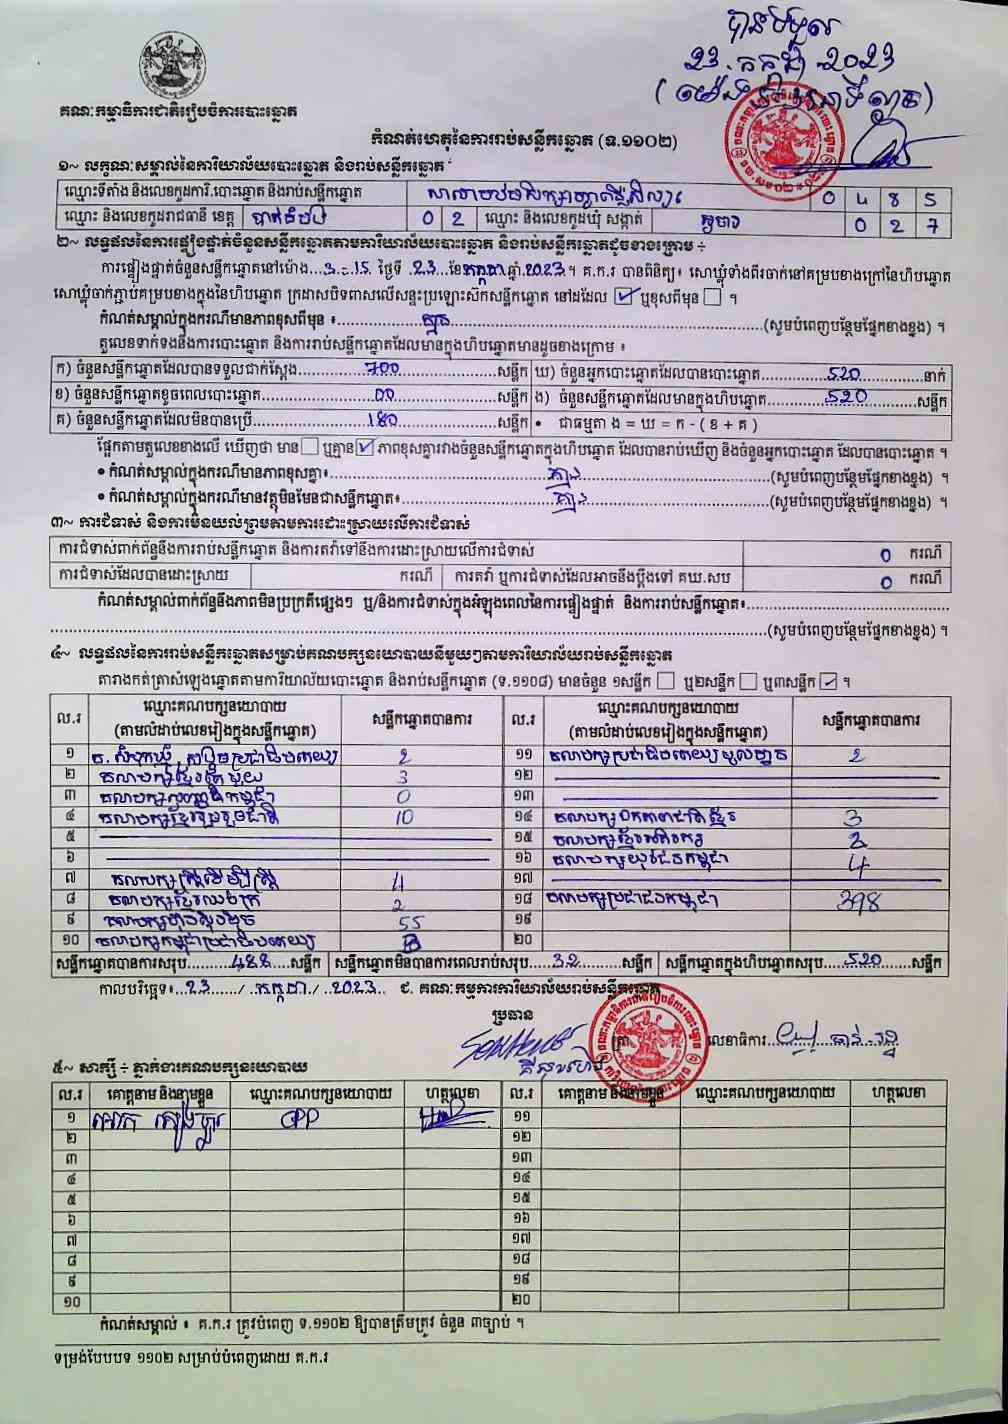 បានទទួល
23.កក្កដា 2023
គណៈកម្មាធិការជាតិរៀបចំការបោះឆ្នោត
កំណត់ហេតុនៃការរាប់សន្លឹកឆ្នោត (ទ.១១០២)
១~ លក្ខណៈសម្គាល់នៃការិយាល័យបោះឆ្នោត និងរាប់សន្លឹកឆ្នោត
ឈ្មោះទីតាំង និងលេខកូដការិ.បោះឆ្នោត និងរាប់សន្លឹកឆ្នោត 0 4 8 5
ឈ្មោះ និងលេខកូដរាជធានី ខេត្ត បាត់ដំបង 0 2 ឈ្មោះ និងលេខកូដឃុំ សង្កាត់ 0 2 7
២~ លទ្ធផលនៃការផ្ទៀងផ្ទាត់ចំនួនសន្លឹកឆ្នោតតាមការិយាល័យបោះឆ្នោត និងរាប់សន្លឹកឆ្នោតដូចខាងក្រោម ÷
ការផ្ទៀងផ្ទាត់ចំនួនសន្លឹកឆ្នោតនៅម៉ោង...3-15 ថ្ងៃទី 23 ខែកក្កដា ឆ្នាំ 2023។ គ.ក.រ បានពិនិត្យ៖ សោឃ្លុំទាំងពីរចាក់នៅគម្របខាងក្រៅនៃហិបឆ្នោត
សោឃ្លុំចាក់ភ្ជាប់គម្របខាងក្នុងនៃហិបឆ្នោត ក្រដាសបិទពាសលើសន្ទះប្រឡោះស៊កសន្លឹកឆ្នោត នៅដដែល ☑ ឬខុសពីមុន ☐ ។
កំណត់សម្គាល់ក្នុងករណីមានភាពខុសពីមុន ៖ (សូមបំពេញបន្ថែមផ្នែកខាងខ្នង) ។
តួលេខទាក់ទងនឹងការបោះឆ្នោត និងការរាប់សន្លឹកឆ្នោតដែលមានក្នុងហិបឆ្នោតមានដូចខាងក្រោម ៖
ក) ចំនួនសន្លឹកឆ្នោតដែលបានទទួលជាក់ស្តែង 700 សន្លឹក ឃ) ចំនួនអ្នកបោះឆ្នោតដែលបានបោះឆ្នោត 520 នាក់
ខ) ចំនួនសន្លឹកឆ្នោតខូចពេលបោះឆ្នោត 00 សន្លឹក ង) ចំនួនសន្លឹកឆ្នោតដែលមានក្នុងហិបឆ្នោត 520 សន្លឹក
គ) ចំនួនសន្លឹកឆ្នោតដែលមិនបានប្រើ 180 សន្លឹក • ជាធម្មតា ង = ឃ = ក - ( ខ + គ )
ផ្អែកតាមតួលេខខាងលើ ឃើញថា មាន ☐ ឬគ្មាន ☑ ភាពខុសគ្នារវាងចំនួនសន្លឹកឆ្នោតក្នុងហិបឆ្នោត ដែលបានរាប់ឃើញ និងចំនួនអ្នកបោះឆ្នោត ដែលបានបោះឆ្នោត ។
• កំណត់សម្គាល់ក្នុងករណីមានភាពខុសគ្នា៖ គ្មាន (សូមបំពេញបន្ថែមផ្នែកខាងខ្នង) ។
• កំណត់សម្គាល់ក្នុងករណីមានវត្ថុមិនមែនជាសន្លឹកឆ្នោត៖ គ្មាន (សូមបំពេញបន្ថែមផ្នែកខាងខ្នង) ។
៣~ ការជំទាស់ និងការមិនយល់ព្រមតាមការដោះស្រាយលើការជំទាស់
ការជំទាស់ពាក់ព័ន្ធនឹងការរាប់សន្លឹកឆ្នោត និងការតវ៉ាទៅនឹងការដោះស្រាយលើការជំទាស់ 0 ករណី
ការជំទាស់ដែលបានដោះស្រាយ ករណី ការតវ៉ា ឬការជំទាស់ដែលអាចនឹងប្តឹងទៅ គឃ.សប 0 ករណី
កំណត់សម្គាល់ពាក់ព័ន្ធនឹងភាពមិនប្រក្រតីផ្សេងៗ ឬ/និងការជំទាស់ក្នុងអំឡុងពេលនៃការផ្ទៀងផ្ទាត់ និងការរាប់សន្លឹកឆ្នោត៖
(សូមបំពេញបន្ថែមផ្នែកខាងខ្នង) ។
៤~ លទ្ធផលនៃការរាប់សន្លឹកឆ្នោតសម្រាប់គណបក្សនយោបាយនីមួយៗតាមការិយាល័យរាប់សន្លឹកឆ្នោត
តារាងកត់ត្រាសំឡេងឆ្នោតតាមការិយាល័យបោះឆ្នោត និងរាប់សន្លឹកឆ្នោត (ទ.១១០៨) មានចំនួន ១សន្លឹក ☐ ឬ២សន្លឹក ☐ ឬ៣សន្លឹក ☑ ។
ល.រ ឈ្មោះគណបក្សនយោបាយ សន្លឹកឆ្នោតបានការ ល.រ ឈ្មោះគណបក្សនយោបាយ សន្លឹកឆ្នោតបានការ
(តាមលំដាប់លេខរៀងក្នុងសន្លឹកឆ្នោត) (តាមលំដាប់លេខរៀងក្នុងសន្លឹកឆ្នោត)
១ គ.សំបុកឃ្មុំសង្គមប្រជាធិបតេយ្យ 2 ១១ គណបក្សប្រជាធិបតេយ្យមូលដ្ឋាន 2
២ គណបក្សខ្មែររួបរួម 3 ១២
៣ គណបក្ស កម្ពុជា 0 ១៣
៤ គណបក្សខ្មែររួបរួមជាតិ 10 ១៤ គណបក្សឯកភាពជាតិខ្មែរ 3
៥ ១៥ គណបក្សខ្មែរអភិរក្ស 2
៦ ១៦ គណបក្សយុវជនកម្ពុជា 4
៧ គណបក្សស្ត្រីដើម្បីស្ត្រី 4 ១៧
៨ គណបក្សខ្មែរឈប់ក្រ 2 ១៨ គណបក្សប្រជាជនកម្ពុជា 398
៩ គណបក្សហ៊្វុនស៊ិនប៉ិច 55 ១៩
១០ គណបក្សកម្ពុជាប្រជាធិបតេយ្យ ២០
សន្លឹកឆ្នោតបានការសរុប 488 សន្លឹក សន្លឹកឆ្នោតមិនបានការពេលរាប់សរុប 32 សន្លឹក សន្លឹកឆ្នោតក្នុងហិបឆ្នោតសរុប 520 សន្លឹក
កាលបរិច្ឆេទ៖ 23 / កក្កដា / 2023 ជ. គណៈកម្មការការិយាល័យរាប់សន្លឹកឆ្នោត
ប្រធាន
ត្រា លេខាធិការ
៥~ សាក្សី ÷ ភ្នាក់ងារគណបក្សនយោបាយ
ល.រ គោត្តនាម និងនាមខ្លួន ឈ្មោះគណបក្សនយោបាយ ហត្ថលេខា ល.រ គោត្តនាម និងនាមខ្លួន ឈ្មោះគណបក្សនយោបាយ ហត្ថលេខា
១ CPP ១១
២ ១២
៣ ១៣
៤ ១៤
៥ ១៥
៦ ១៦
៧ ១៧
៨ ១៨
៩ ១៩
១០ ២០
កំណត់សម្គាល់ ៖ គ.ក.រ ត្រូវបំពេញ ទ.១១០២ ឱ្យបានត្រឹមត្រូវ ចំនួន ៣ច្បាប់ ។
ទម្រង់បែបបទ ១១០២ សម្រាប់បំពេញដោយ គ.ក.រ